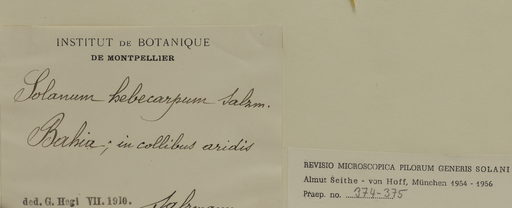 INSTITUT DE BOTANIQUE
DE MONTPELLIER
Solanum hebecarpum Salzm.
Bahia; in collibus aridis
ded. G. Hegi VII. 1910.
Salzmann
REVISIO MICROSCOPICA PILORUM GENERIS SOLANI
Almut Seithe - von Hoff, München 1954 - 1956
Praep. no. 374-375